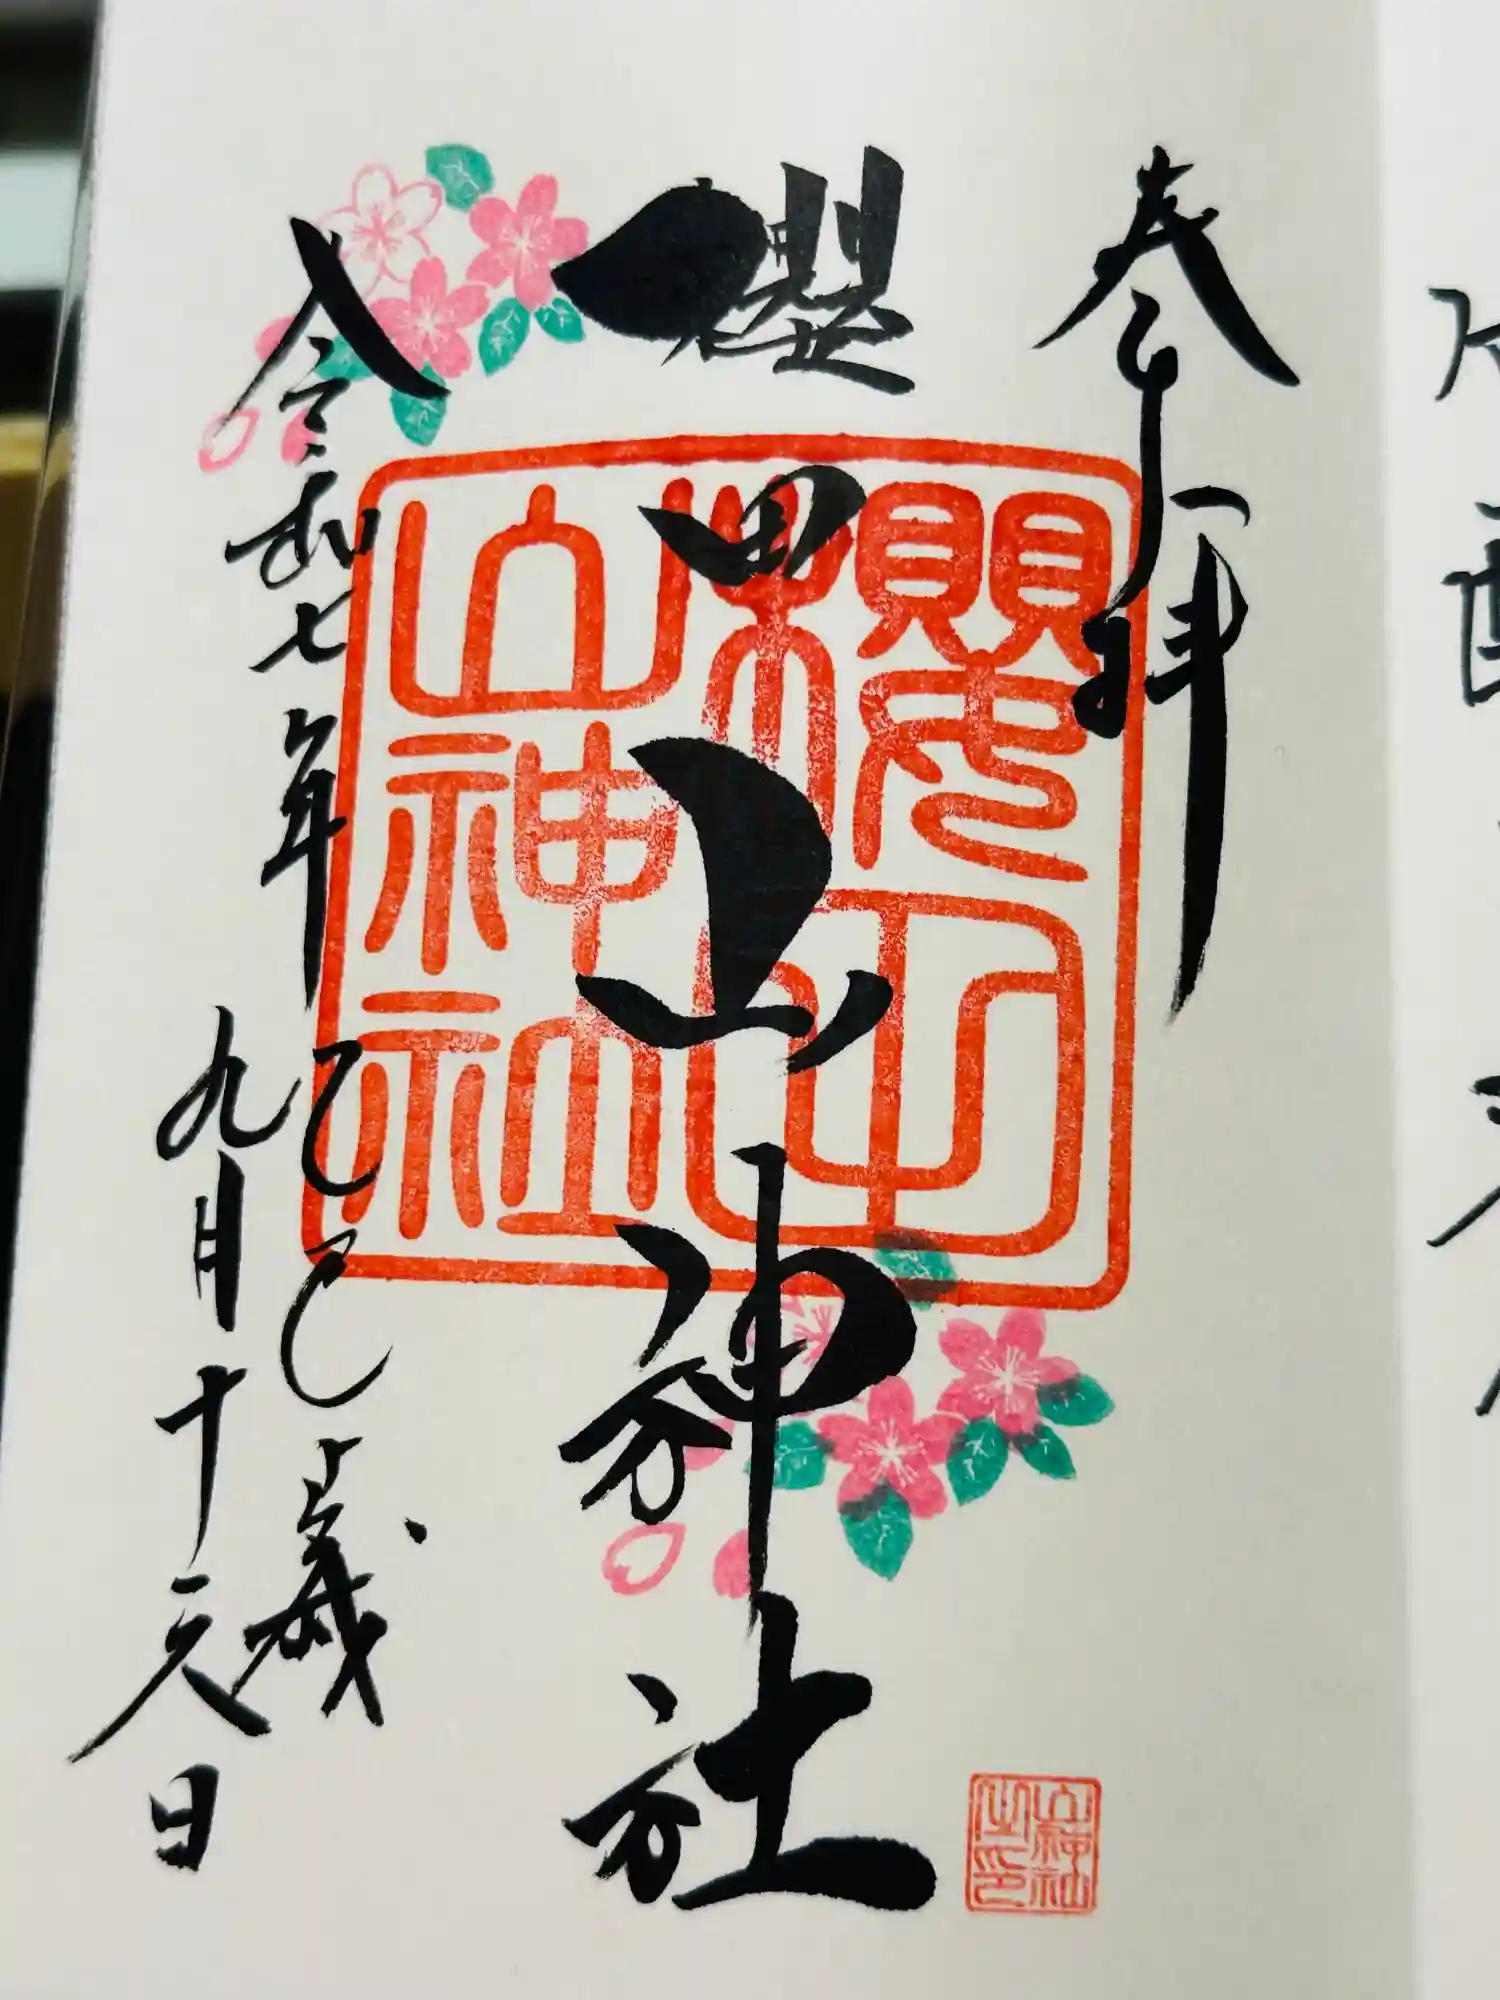 奉拝
櫻田山神社
令和七年
乙巳歳
九月十六日
櫻田山神社
山神社之印